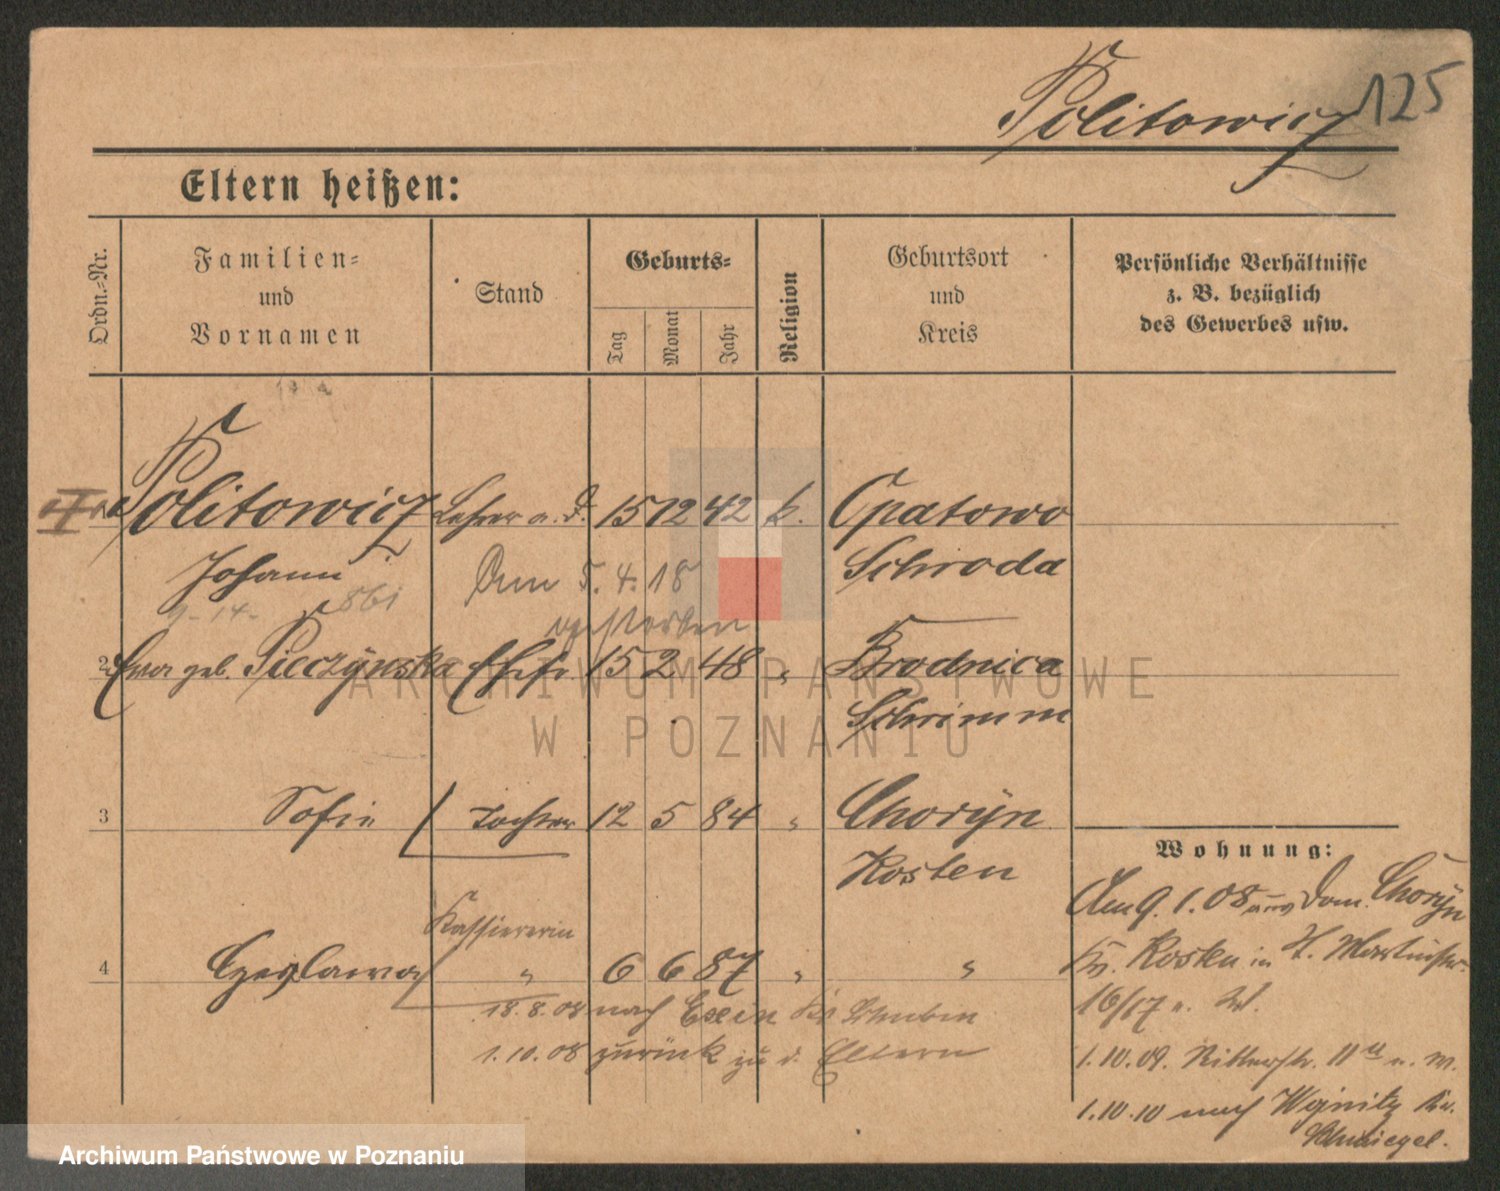 Politowicz 125
Eltern heißen:
Ordn.-Nr.
Familien-
und
Vornamen
Stand
Geburts-
Tag
Monat
Jahr
Religion
Geburtsort
und
Kreis
Persönliche Verhältnisse
z. B. bezüglich
des Gewerbes usw.
Politowicz Lehrer a. d. 15 12 42 k. Opatowo
Johann Schroda
Am 5. 4. 18
861
9. 14.
gestorben
2 Ewa geb. Pieczynska Ehefr. 15 2 48 " Brodnica
Schrimm
3 Sofie Tochter 12 5 84 " Choryn
Kosten
Kassiererin
4 Czeslawa " 6 6 87 " "
18.8.08 nach Exin Kr. Schubin
1.10.08 zurück zu d. Eltern
Wohnung:
Am 9. 1. 08 aus Dom. Choryn
Kr. Kosten in St. Martinstr.
16/17 u. W.
1.10.09. Ritterstr. 11 u. W.
1.10.10 nach Woinitz Kr.
Schmiegel.
ARCHIWUM PAŃSTWOWE
W POZNANIU
Archiwum Państwowe w Poznaniu